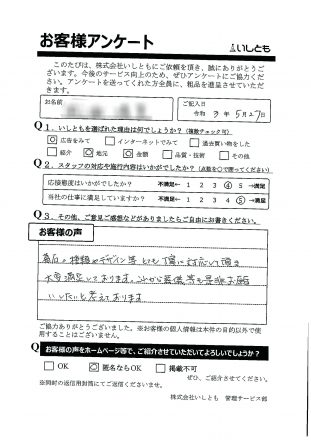 お客様アンケート
いしとも
このたびは、株式会社いしともにご依頼を頂き、誠にありがとうご
ざいます。今後のサービス向上のため、ぜひアンケートにご協力くださ
い。アンケートを送ってくれた方全員に、粗品を進呈させていただ
きます。
お名前
ご記入日
令和 3年 5月27日
Q1. いしともを選ばれた理由は何でしょうか?(複数チェック可)
広告をみて インターネットでみて 過去買い物をした
紹介 地元 金額 品質・技術 その他
Q2. スタッフの対応や施行内容はいかがでしたか?(点数を○で囲ってください)
応接態度はいかがでしたか? 不満← 1 2 3 4 5 →満足
当社の仕事に満足していますか? 不満← 1 2 3 4 5 →満足
Q3. その他、ご意見ご感想などがありましたらご自由にお書きください。
お客様の声
墓石の種類やデザイン等とても丁寧に対応して頂き
大変満足しております。
いしたいと考えております
ご協力ありがとうございました。※お客様の個人情報は本件の目的以外で使
用することはございません。
Q お客様の声をホームページ等で、ご紹介させていただいてよろしいでしょうか?
OK 匿名ならOK 掲載不可
ぜひ、ご紹介させてください。
※同封の返信用封筒にてご送信くださいませ。
株式会社いしとも 管理サービス部